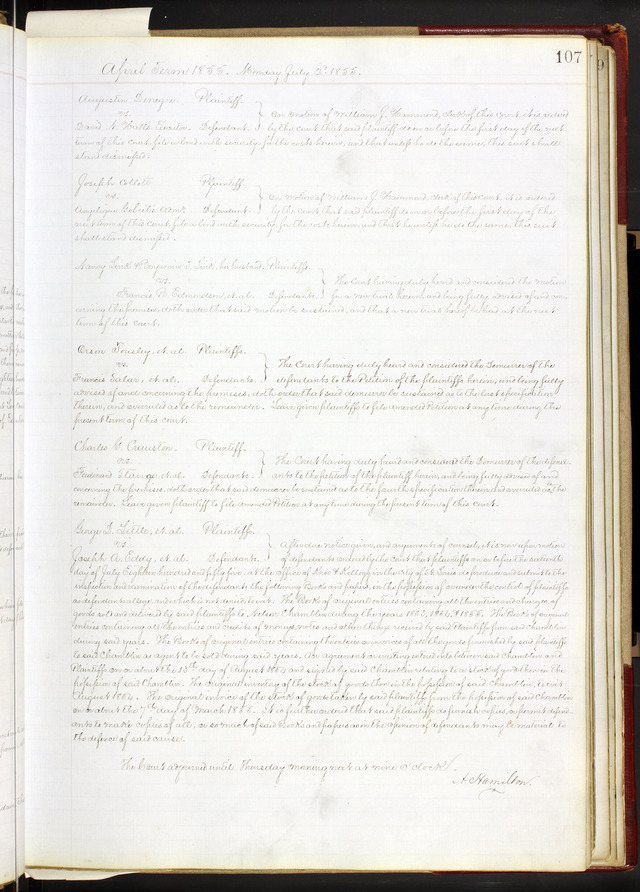 107
April Term 1855. Monday July 2d. 1855.
Augustin Plaintiff.
vs. On motion of William J. Hammond, clerk of this court, it is ordered
David N. Hall's Executor. Defendant. by the court that said plaintiff do on or before the first day of the next
term of this court, file a bond with security for the costs herein, and that unless he do the same, this suit shall
stand dismissed.
Joseph Plaintiff.
vs. On motion of William J. Hammond, clerk of this court, it is ordered
Admr. Defendant. by the court that said plaintiff do on or before the first day of the
next term of this court, file a bond with security, for the costs herein, and that unless he do the same, this suit
shall stand dismissed.
Nancy Link & Benjamin T. Link, her husband, Plaintiffs.
vs. The Court having duly heard and considered the motion
Francis B. Edmondson, et. al. Defendants. for a new trial herein, and being fully advised of and con-
cerning the premises, doth order that said motion be sustained, and that a new trial be had at the next
term of this court.
Orson Tousley, et. al. Plaintiffs.
vs. The Court having duly heard and considered the Demurrer of the
Francis Saler, et. al. Defendants. defendants to the Petition of the plaintiffs herein, and being fully
advised of and concerning the premises, doth order that said demurrer be sustained as to the last specification
therein, and overruled as to the remainder. Leave given plaintiffs to file amended Petition at any time during the
present term of this court.
Charles Cranston. Plaintiff.
vs. The Court having duly heard and considered the Demurrer of the defend-
Ferdinand et. al. Defendants. ants to the petition of the plaintiff herein, and being fully advised of and
concerning the premises, doth order that said demurrer be sustained as to the fourth specification therein and overruled as to the
remainder. Leave given plaintiff to file amended Petition at any time during the present term of this court.
George D. Little, et. al. Plaintiffs.
vs. After due notice given, and arguments of counsel, it is now upon motion
Joseph A. Eddy, et. al. Defendants. of defendants ordered by the Court that plaintiffs on or before the sixteenth
day of July Eighteen hundred and fifty five, at the office of in the City of St. Louis do furnish and submit to the
inspection and examination of the defendants the following Books and papers in the possession of or under the control of plaintiffs
as defendants allege, and which is not denied, to wit. The Books of original entries containing all the entries and charges of
goods sold and delivered by said plaintiffs to Chamblin during the years 1853, 1854, & 1855. The Books of original
entries containing all the entries and credits of moneys, notes and other things received by said Plaintiffs from said Chamblin
during said years. The Books of original entries containing the entries or invoices of all the goods furnished by said plaintiffs
to said Chamblin as agent to be sold during said years. An agreement in writing entered into between said Chamblin and
Plaintiffs on or about the 15th day of August 1854 and signed by said Chamblin relating to a stock of goods then in the
possession of said Chamblin. The original inventory of the stock of goods then in the possession of said Chamblin, to wit.
August 1854. The original invoice of the stock of goods taken by said plaintiffs from the possession of said Chamblin
on or about the 7th day of March 1855. It is further ordered that said plaintiffs do furnish copies, or permit defend-
ants to make copies of all, or so much of said Books and papers as in the opinion of defendants may be material to
the defence of said cause.
The Court adjourned until Thursday morning next at nine o'clock.
A. Hamilton.